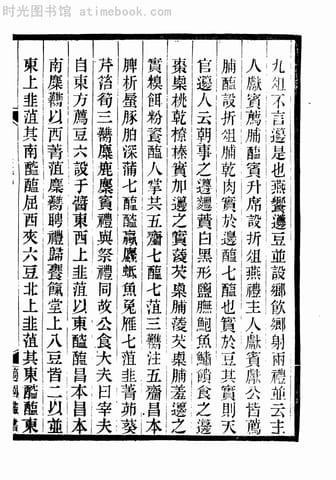 时光图书馆 www.atimebook.com
九俎不言籩是也燕饗籩豆並設鄉飲鄉射兩禮並云主
人獻賓薦脯醢賓升席設折俎燕禮主人獻賓獻公皆薦
脯醢設折俎脯乾肉實於籩七醢也實於豆其實則天
官籩人云朝事之籩麷蕡白黑形鹽膴鮑魚鱐饋食之籩
棗㮚桃乾橑榛實加籩之實蔆芡㮚脯蔆芡㮚脯羞籩之
實糗餌粉餈醢人掌其五齏七醢七菹三臡注五齏昌本
脾析蜃豚拍深蒲七醢醓蠃蠯蚳魚兔雁七菹韭菁茆葵
芹箈筍三臡麋鹿麇賓禮與祭禮同故公食大夫曰宰夫
自東方薦豆六設于醬東西上韭菹以東醓醢昌本
南麋臡以西菁菹鹿臡聘禮歸饔餼堂上八豆皆二以並
東上韭菹其南醓醢屈西夾六豆北上韭菹其東醓醢東